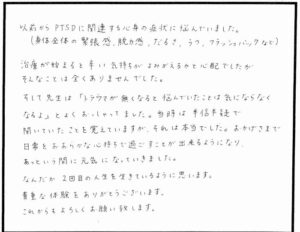 以前から PTSDに関連する心身の症状に悩んでいました。
(身体全体の緊張感、脱力感、だるさ、うつ、フラッシュバックなど)
治療が始まると辛い気持ちがよみがえるかと心配でしたが
そんなことは全くありませんでした。
そして先生は「トラウマが無くなると悩んでいたことは気にならなく
なるよ」とよくおっしゃってました。当時は半信半疑で
聞いていたことを覚えていますが、それは本当でした。おかげさまで
日常をおおらかな心持ちで過ごすことが出来るようになり、
あっという間に元気になっていきました。
なんだか 2回目の人生を生きているように思います。
貴重な体験をありがとうございます。
これからもよろしくお願い致します。